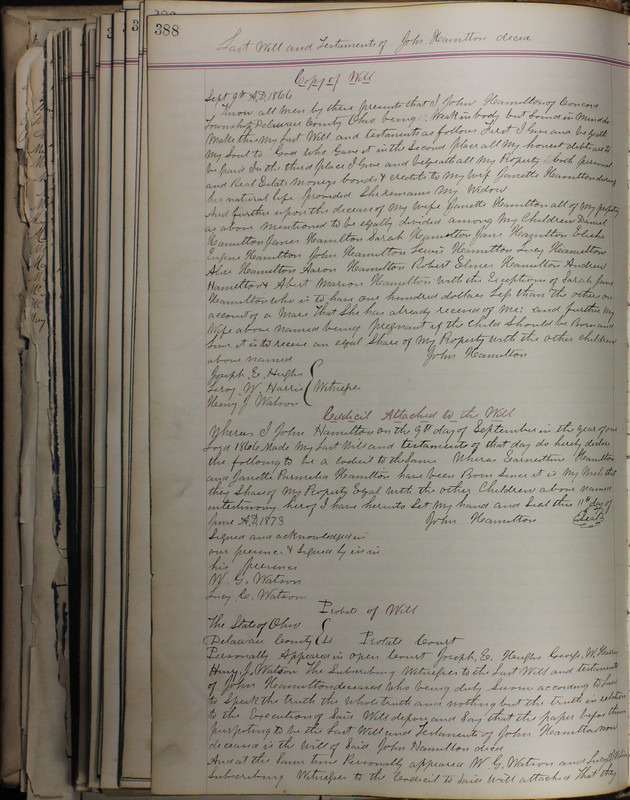 388
Last Will and Testaments of John Hamilton decsd
Copy of Will
Sept 9th A.D. 1866
Know all Men by these Presents that I John Hamilton of Concord
Township Delaware County Ohio being Weak in body but Sound in Mind do
Make this My Last Will and testament as follows First I Give and bequeth
My Soul to God who Gave it in the Second place all My honest debts are to
be paid In the third place I Give and bequeath all My Property both personal
and Real Estate Moneys bonds & credits to My Wife Janette Hamilton during
her natural life provided She remains My Widow
And further upon the decease of My Wife Janette Hamilton all of My property
as above Mentioned to be eqally divided among My Children Daniel
Hamilton James Hamilton Sarah Hamilton Jane Hamilton Elisha
Eugene Hamilton John Hamilton Lewis Hamilton Lucy Hamilton
Alice Hamilton Aaron Hamilton Robert Elmer Hamilton Andrew
Hamilton & Albert Marion Hamilton With the Exceptions of Sarah Jane
Hamilton who is to have one hundred dollars less than the others on
account of a Mare that She has already received of Me: and further My
Wife above named being pregnant if the Child Should be Born and
live it is to receive an eqal Share of My Property With the other children
above named John Hamilton
Joseph E. Hughs
Leroy W. Harris Witnesses
Henry J Watson
Codicil Attached to the Will
Whereas I John Hamilton on the 9th day of September in the year of our
Lord 1866 Made My Last Will and testaments of that day do hereby declare
the following to be a codicil to the Same. Whereas Earnestine Hamilton
and Janette Permelia Hamilton have been Born Since it is My Wish that
they Share of My Property Eqal With the other Children above named
In testimony hereof I have hereunto Set My hand and Seal this 11th day of
June A.D. 1873 John Hamilton Seal
Signed and acknowledged in
our presence & Signed by us in
his presence
W. G. Watson
Lucy C. Watson
Probate of Will
The State of Ohio
Delaware County Ss Probate Court
Personally Appeared in open Court Joseph E. Hughs Leroy W. Harris
Henry J. Watson The Subscribing Witnesses to the Last Will and testament
of John Hamilton deceased Who being duly Sworn according to Law
to Speak the truth the Whole truth and nothing but the truth in relation
to the Execution of Said Will depose and Say that the paper before them
purporting to be the Last Will and Testaments of John Hamilton now
deceased is the Will of Said John Hamilton decsd
And at the Same time Personally appeared W. G. Watson and Lucy C Watson
Subscribing Witnesses to the Codicil to Said Will attached That they